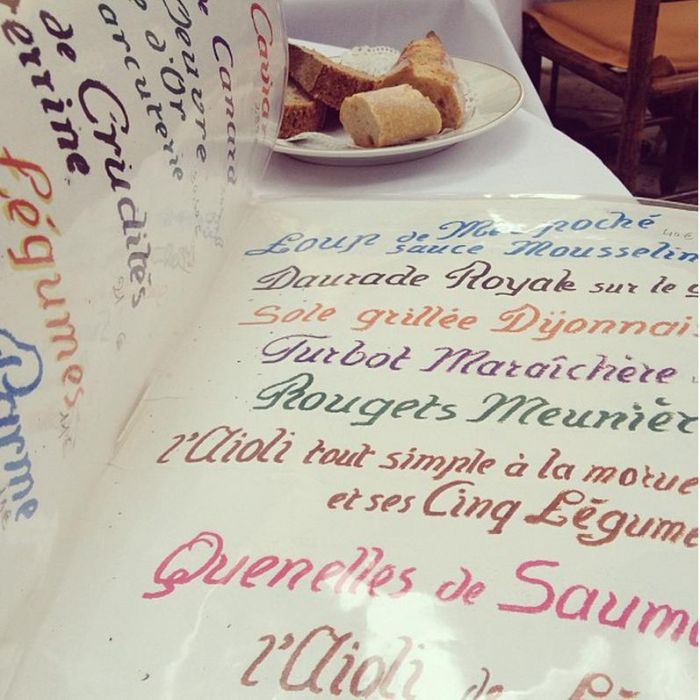 Canard
d'Or
de Crudités
errine
Légumes
Loup de Mer poché
sauce Mousselin
Daurade Royale sur le g
Sole grillée Dijonnais
Turbot Maraîchère
Rougets Meunièr
l'Aïoli tout simple à la morue
et ses Cinq Légume
Quenelles de Saum
l'Aïoli de